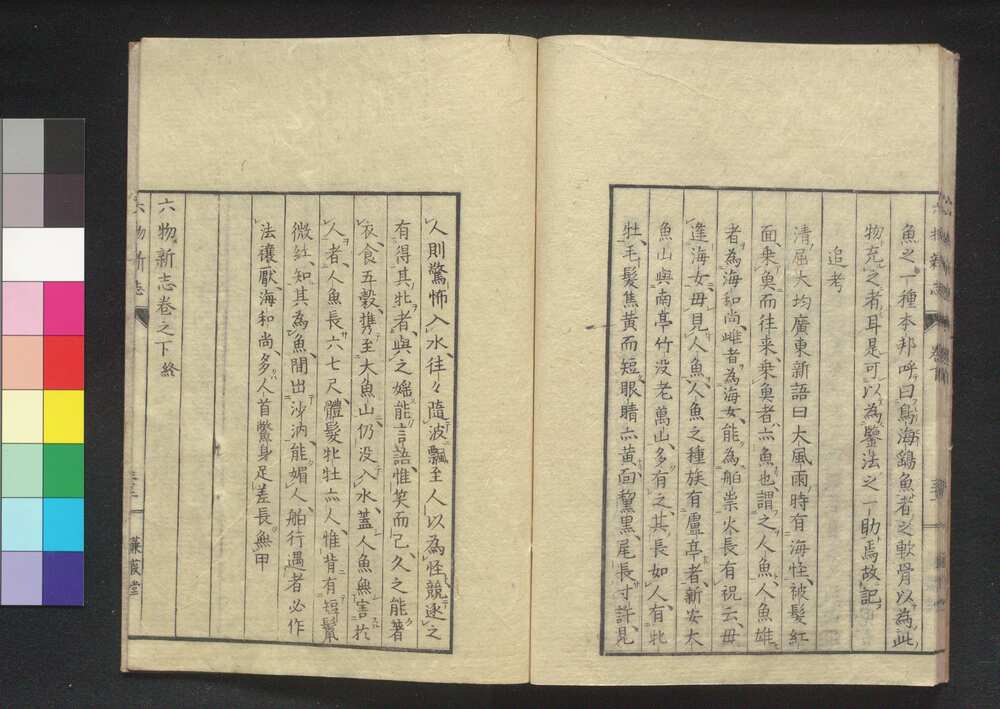 魚之一種本邦呼曰鳥海鷂魚者之軟骨以為此
物充之者耳是可以為鑒法之一助焉故記
追考
清屈大均廣東新語曰大風雨時有海怪被髮紅
面乗魚而往来乗魚者亦魚也謂之人魚人魚雄
者為海和尚雌者為海女能為舶祟火長有祝云毋
逢海女毋見人魚人魚之種族有盧亭者新安大
魚山與南亭竹没老萬山多有之其長如人有牝
牡毛髮焦黄而短眼睛亦黄面黧黒尾長寸許見
人則驚怖入水往々隨波飄至人以為怪競逐之
有得其牝者與之婬能言語惟笑而已久之能著
衣食五穀携至大魚山仍没入水蓋人魚無害於
人者人魚長六七尺體髮牝牡亦人惟背有短鬣
微紅知其為魚間出沙汭能媚人舶行遇者必作
法禳厭海和尚多人首鱉身足差長無甲
六物新志卷之下終
六物新志
蒹葭堂